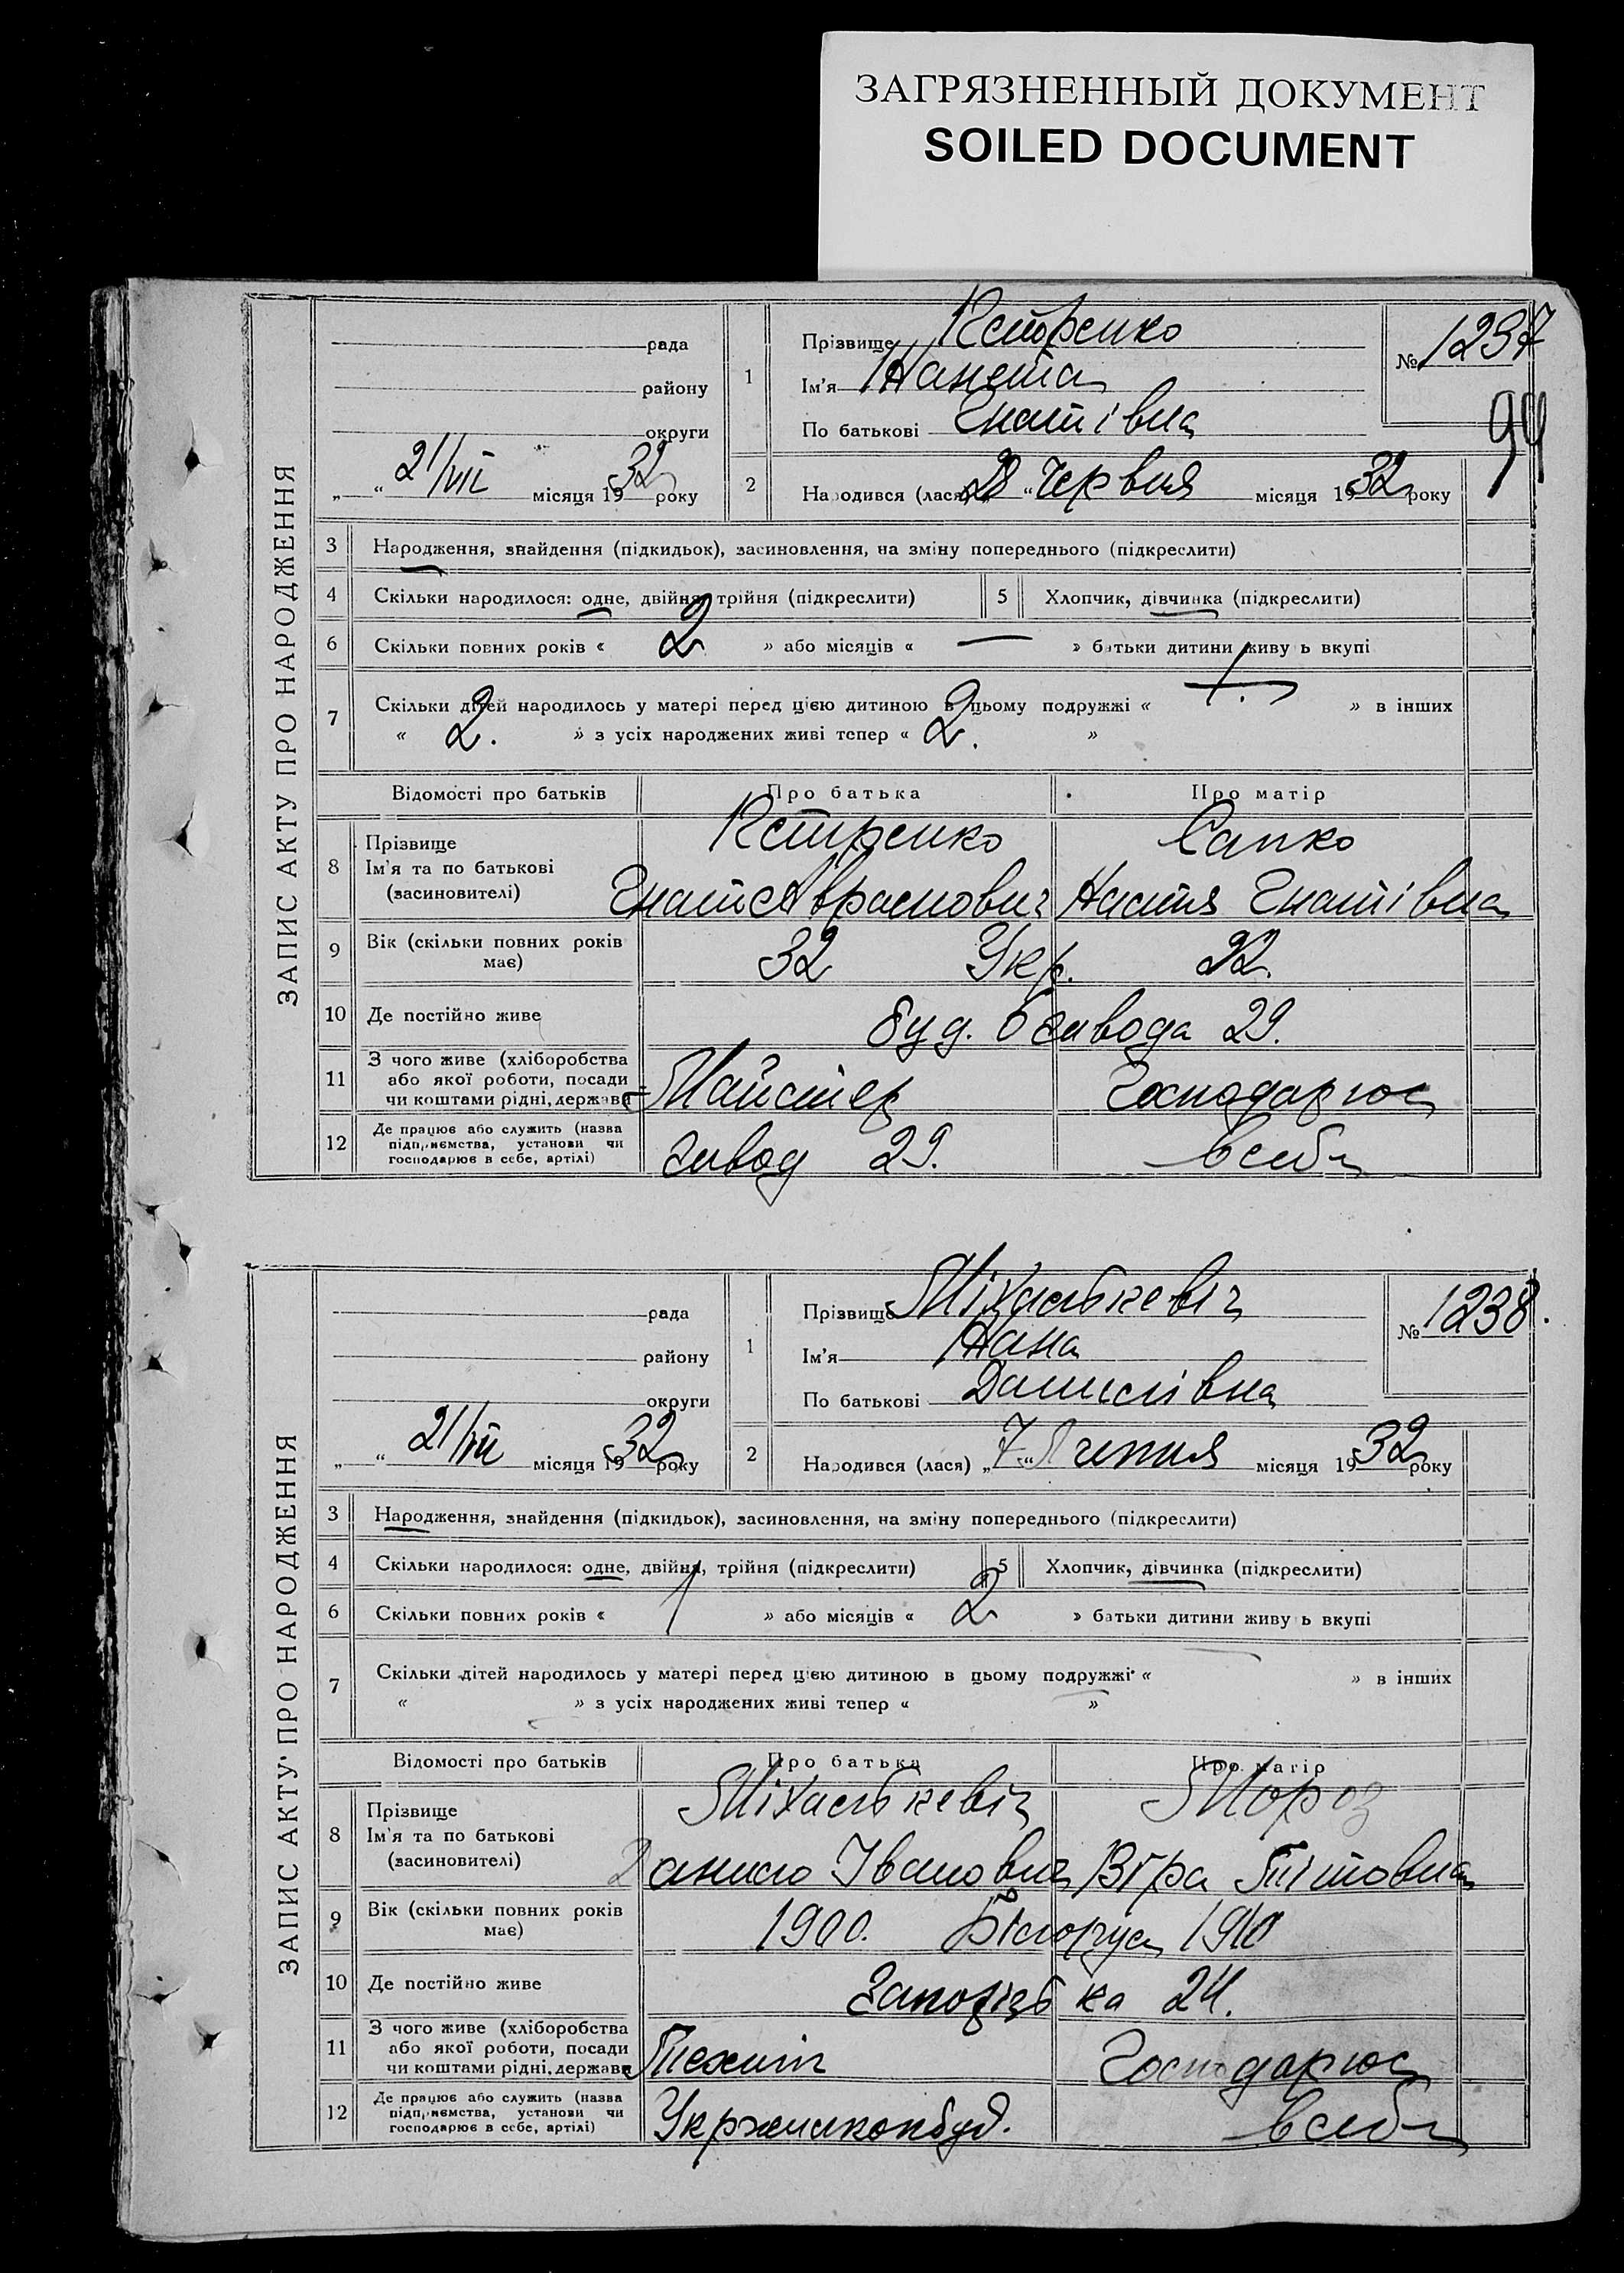 ЗАГРЯЗНЕННЫЙ ДОКУМЕНТ
SOILED DOCUMENT
ЗАПИС АКТУ ПРО НАРОДЖЕННЯ
рада
району
округи
„ “ 21/VII місяця 1932 року
1
Прізвище
Ім'я Жанета
По батькові Гнатівна
№ 1237
94
2
Народився (лася) „28“ Червня місяця 1932 року
3 Народження, знайдення (підкидьок), засиновлення, на зміну попереднього (підкреслити)
4 Скільки народилося: одне, двійня, трійня (підкреслити) 5 Хлопчик, дівчинка (підкреслити)
6 Скільки повних років « 2 » або місяців « — » батьки дитини живуть вкупі
7 Скільки дітей народилось у матері перед цією дитиною в цьому подружжі « » в інших
« 2. » з усіх народжених живі тепер « 2. »
Відомості про батьків Про батька Про матір
8 Прізвище
Ім'я та по батькові
(засиновителі)
Сапко
Гнат Настя Гнатівна
9 Вік (скільки повних років має) 32 Укр.
10 Де постійно живе буд. завода 29.
11 З чого живе (хліборобства або якої роботи, посади чи коштами рідні, держави Майстер Господарює
12 Де працює або служить (назва підприємства, установи чи господарює в себе, артілі) завод 29. в себе
ЗАПИС АКТУ ПРО НАРОДЖЕННЯ
рада
району
округи
„ “ 21/VII місяця 1932 року
1
Прізвище Міхалькевіч
Ім'я
По батькові Данилівна
№ 1238.
2
Народився (лася) „7“ Липня місяця 1932 року
3 Народження, знайдення (підкидьок), засиновлення, на зміну попереднього (підкреслити)
4 Скільки народилося: одне, двійня, трійня (підкреслити) 5 Хлопчик, дівчинка (підкреслити)
6 Скільки повних років « 1 » або місяців « 2 » батьки дитини живуть вкупі
7 Скільки дітей народилось у матері перед цією дитиною в цьому подружжі « » в інших
« » з усіх народжених живі тепер « »
Відомості про батьків Про батька Про матір
8 Прізвище
Ім'я та по батькові
(засиновителі)
Міхалькевіч Мороз
Данило Іванович Віра Тітовна
9 Вік (скільки повних років має) 1900. Білорус 1910
10 Де постійно живе 24.
11 З чого живе (хліборобства або якої роботи, посади чи коштами рідні, держави Технік Господарює
12 Де працює або служить (назва підприємства, установи чи господарює в себе, артілі) в себе